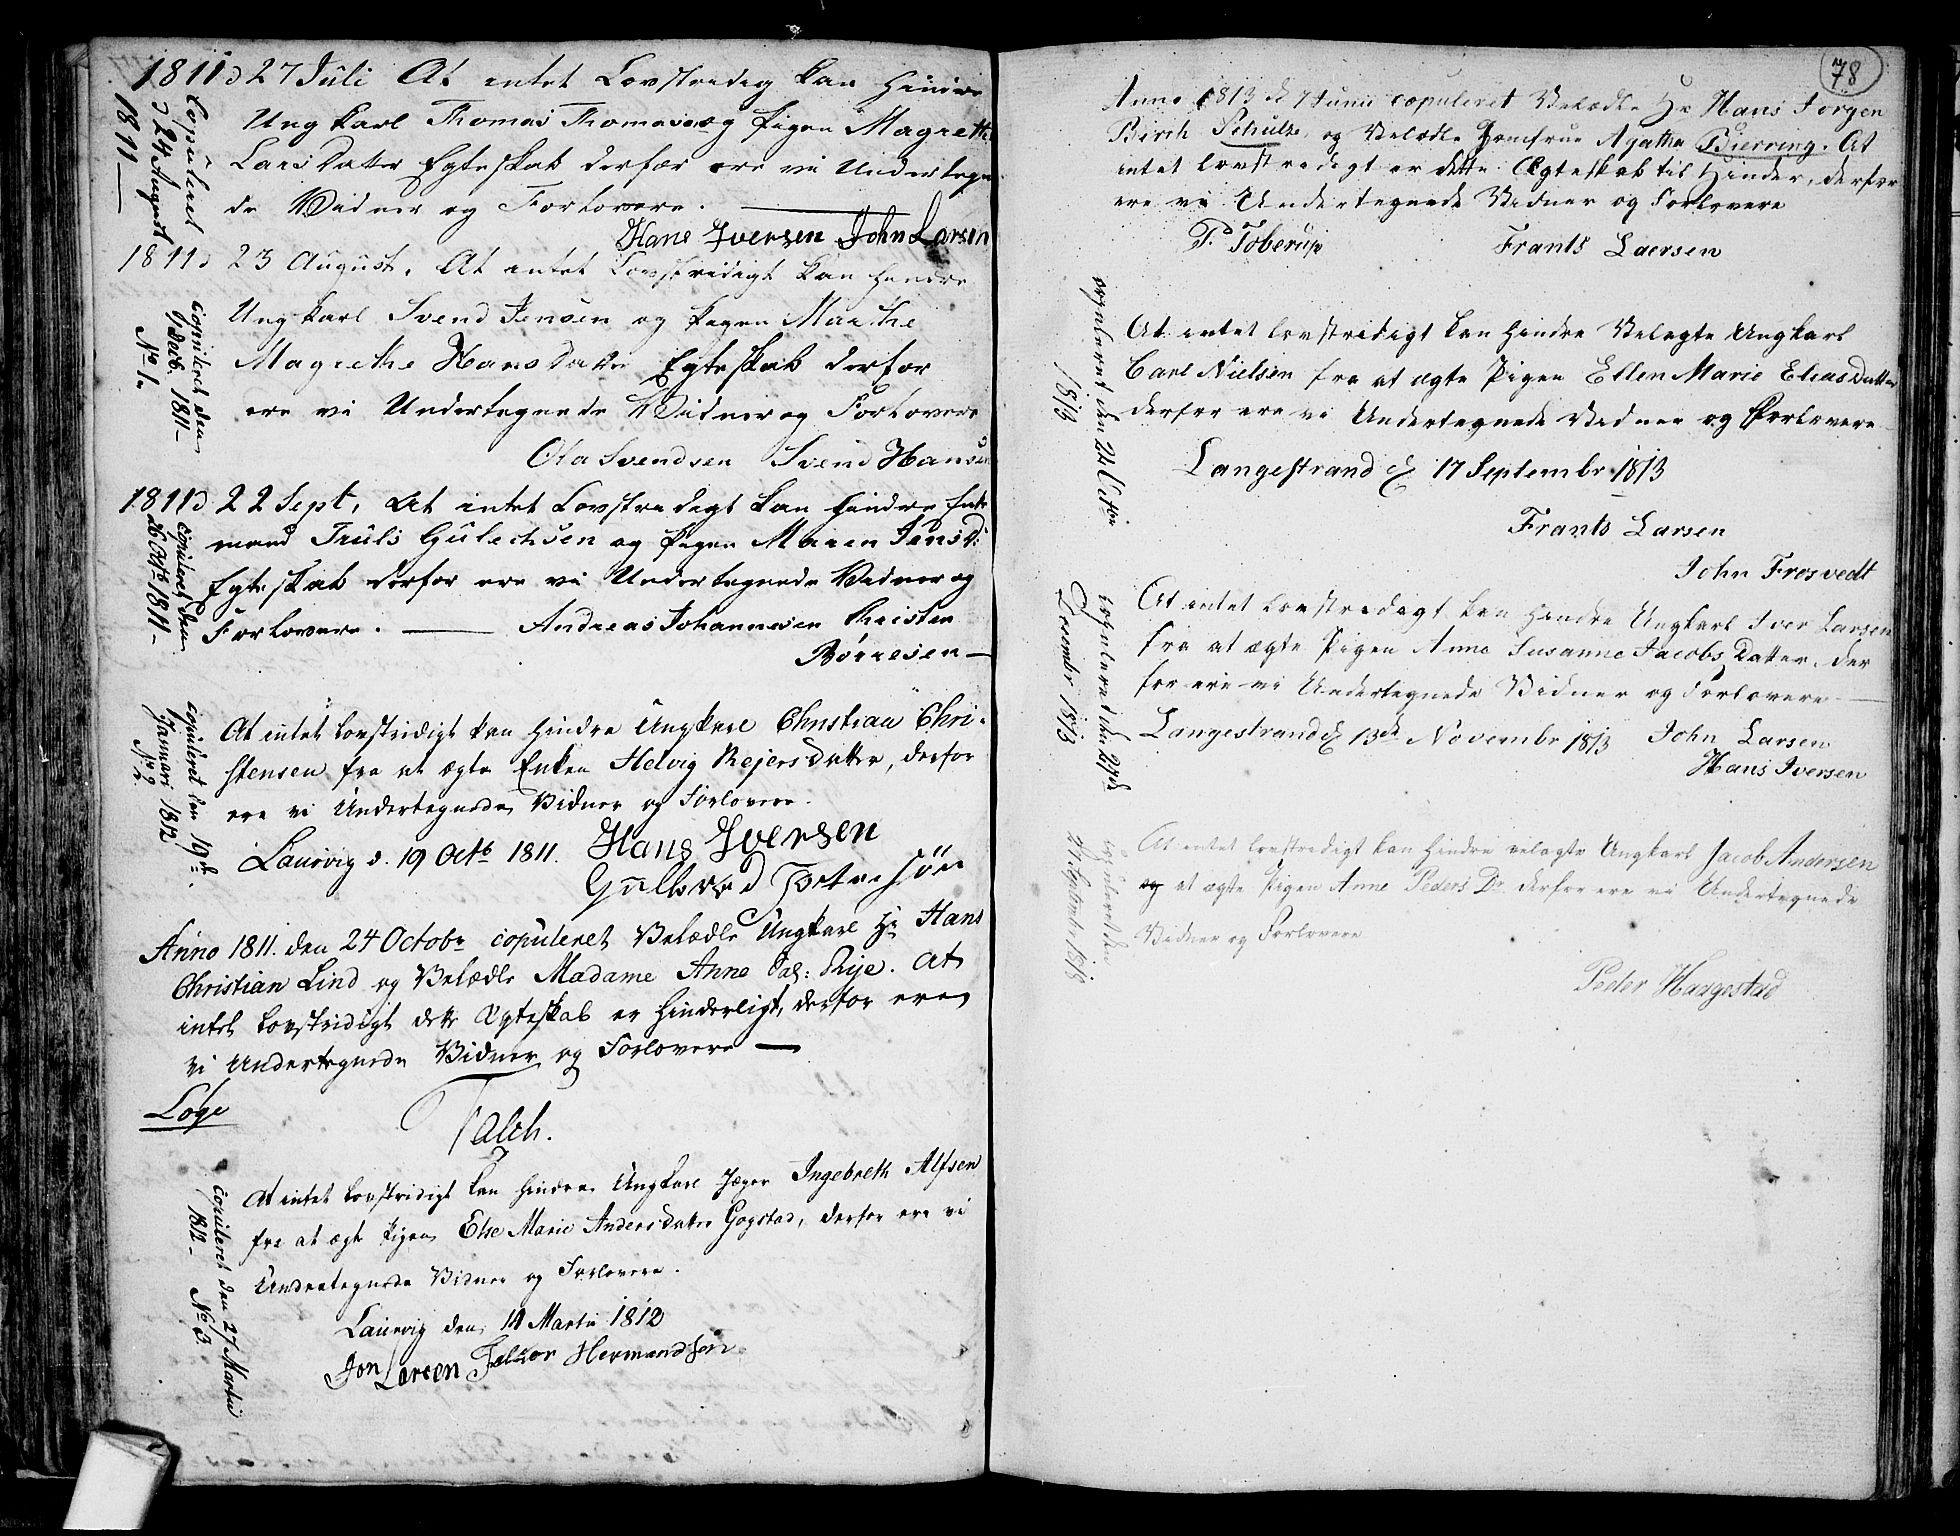 1811 d 27 Juli At intet Lovstredig kan Hindre
Ungkarl Thomas Thomasen og Pigen Magrethe
Lars Datter Egteskab derfor ere vi Undertegne
de Vidner og Forlovere.
Hans Iversen John Larsen
Copuleret
d 24 August
1811
1811 d 23 August. At intet Lovstridigt kan Hendre
Ungkarl Svend Jensen og Pigen Marthe
Magrethe Hans Datter Egteskab derfor
ere vi Undertegnede Vidner og Forlovere
Ola Svendsen Svend Hansen
copuleret den
9 Octb. 1811
No 1.
1811 d 22 Sept, At intet Lovstredigt kan Hindre Enke
mand Truls Gulechsen og Pigen Maren Jens D:
Egteskab derfor ere vi Undertegnede Vidner og
Forlovere. Andreas Johannesen Christen
Börresen
copuleret den
26 Octb 1811
At intet Lovstridigt kan Hindre Ungkarl Christian Chri-
stensen fra at ægte Enken Helvig Rejers Datter, derfor
ere vi Undertegnede Vidner og Forlovere.
Laurvig d. 19 Octb 1811. Hans Iversen
Gulbrand
copuleret den 19de
Januari 1812
No 2.
Anno 1811. den 24 Octobr copuleret Velædle Ungkarl Hr Hans
Christian Lind og Velædle Madame Anne Cat: Rije. At
intet Lovstridigt dette Ægteskab er Hinderligt, derfor ere
vi Undertegnede Vidner og Forlovere
Løge
Falch.
At intet Lovstridigt kan Hindre Ungkarl Jæger Ingebreth Alfsen
fra at ægte Pigen Else Marie Anders Datter Gogstad, derfor ere vi
Undertegnede Vidner og Forlovere.
Laurvig den 14 Martii 1812
Jon Larsen Halvor Hermandsen
copuleret den 27 Martii
1812 No 3
78
Anno 1813 d 7 Junii copuleret Velædle Hr Hans Jorgen
Birch Schultz og Velædle Jomfrue Agatha Bierring. At
intet lovstredigt er dette Ægteskab til Hinder, derfor
ere vi Undertegnede Vidner og Forlovere
P. Toberup Frants Laersen
At intet lovstredigt kan Hindre Velagte Ungkarl
Carl Nielsen fra at ægte Pigen Ellen Marie Elias Datter
derfor ere vi Undertegnede Vidner og Forlovere
Langestrand d 17 Septembr 1813
Frants Larsen
John Frosvedt
copuleret den 24 Octbr
1813
At intet lovstredigt kan Hindre Ungkarl Iver Larsen
fra at ægte Pigen Anne Susanne Jacobs Datter, der
for ere vi Undertegnede Vidner og Forlovere
Langestrand d 13de Novembr 1813 John Larsen
Hans Iversen
copuleret den 27de
Decembr 1813
At intet Lovstredigt kan Hindre velagte Ungkarl Jacob Andersen
og at ægte Pigen Anne Peders Dr. derfor ere vi Undertegnede
Vidner og Forlovere
Peder Haagestad
copuleret den
Septembr 1813